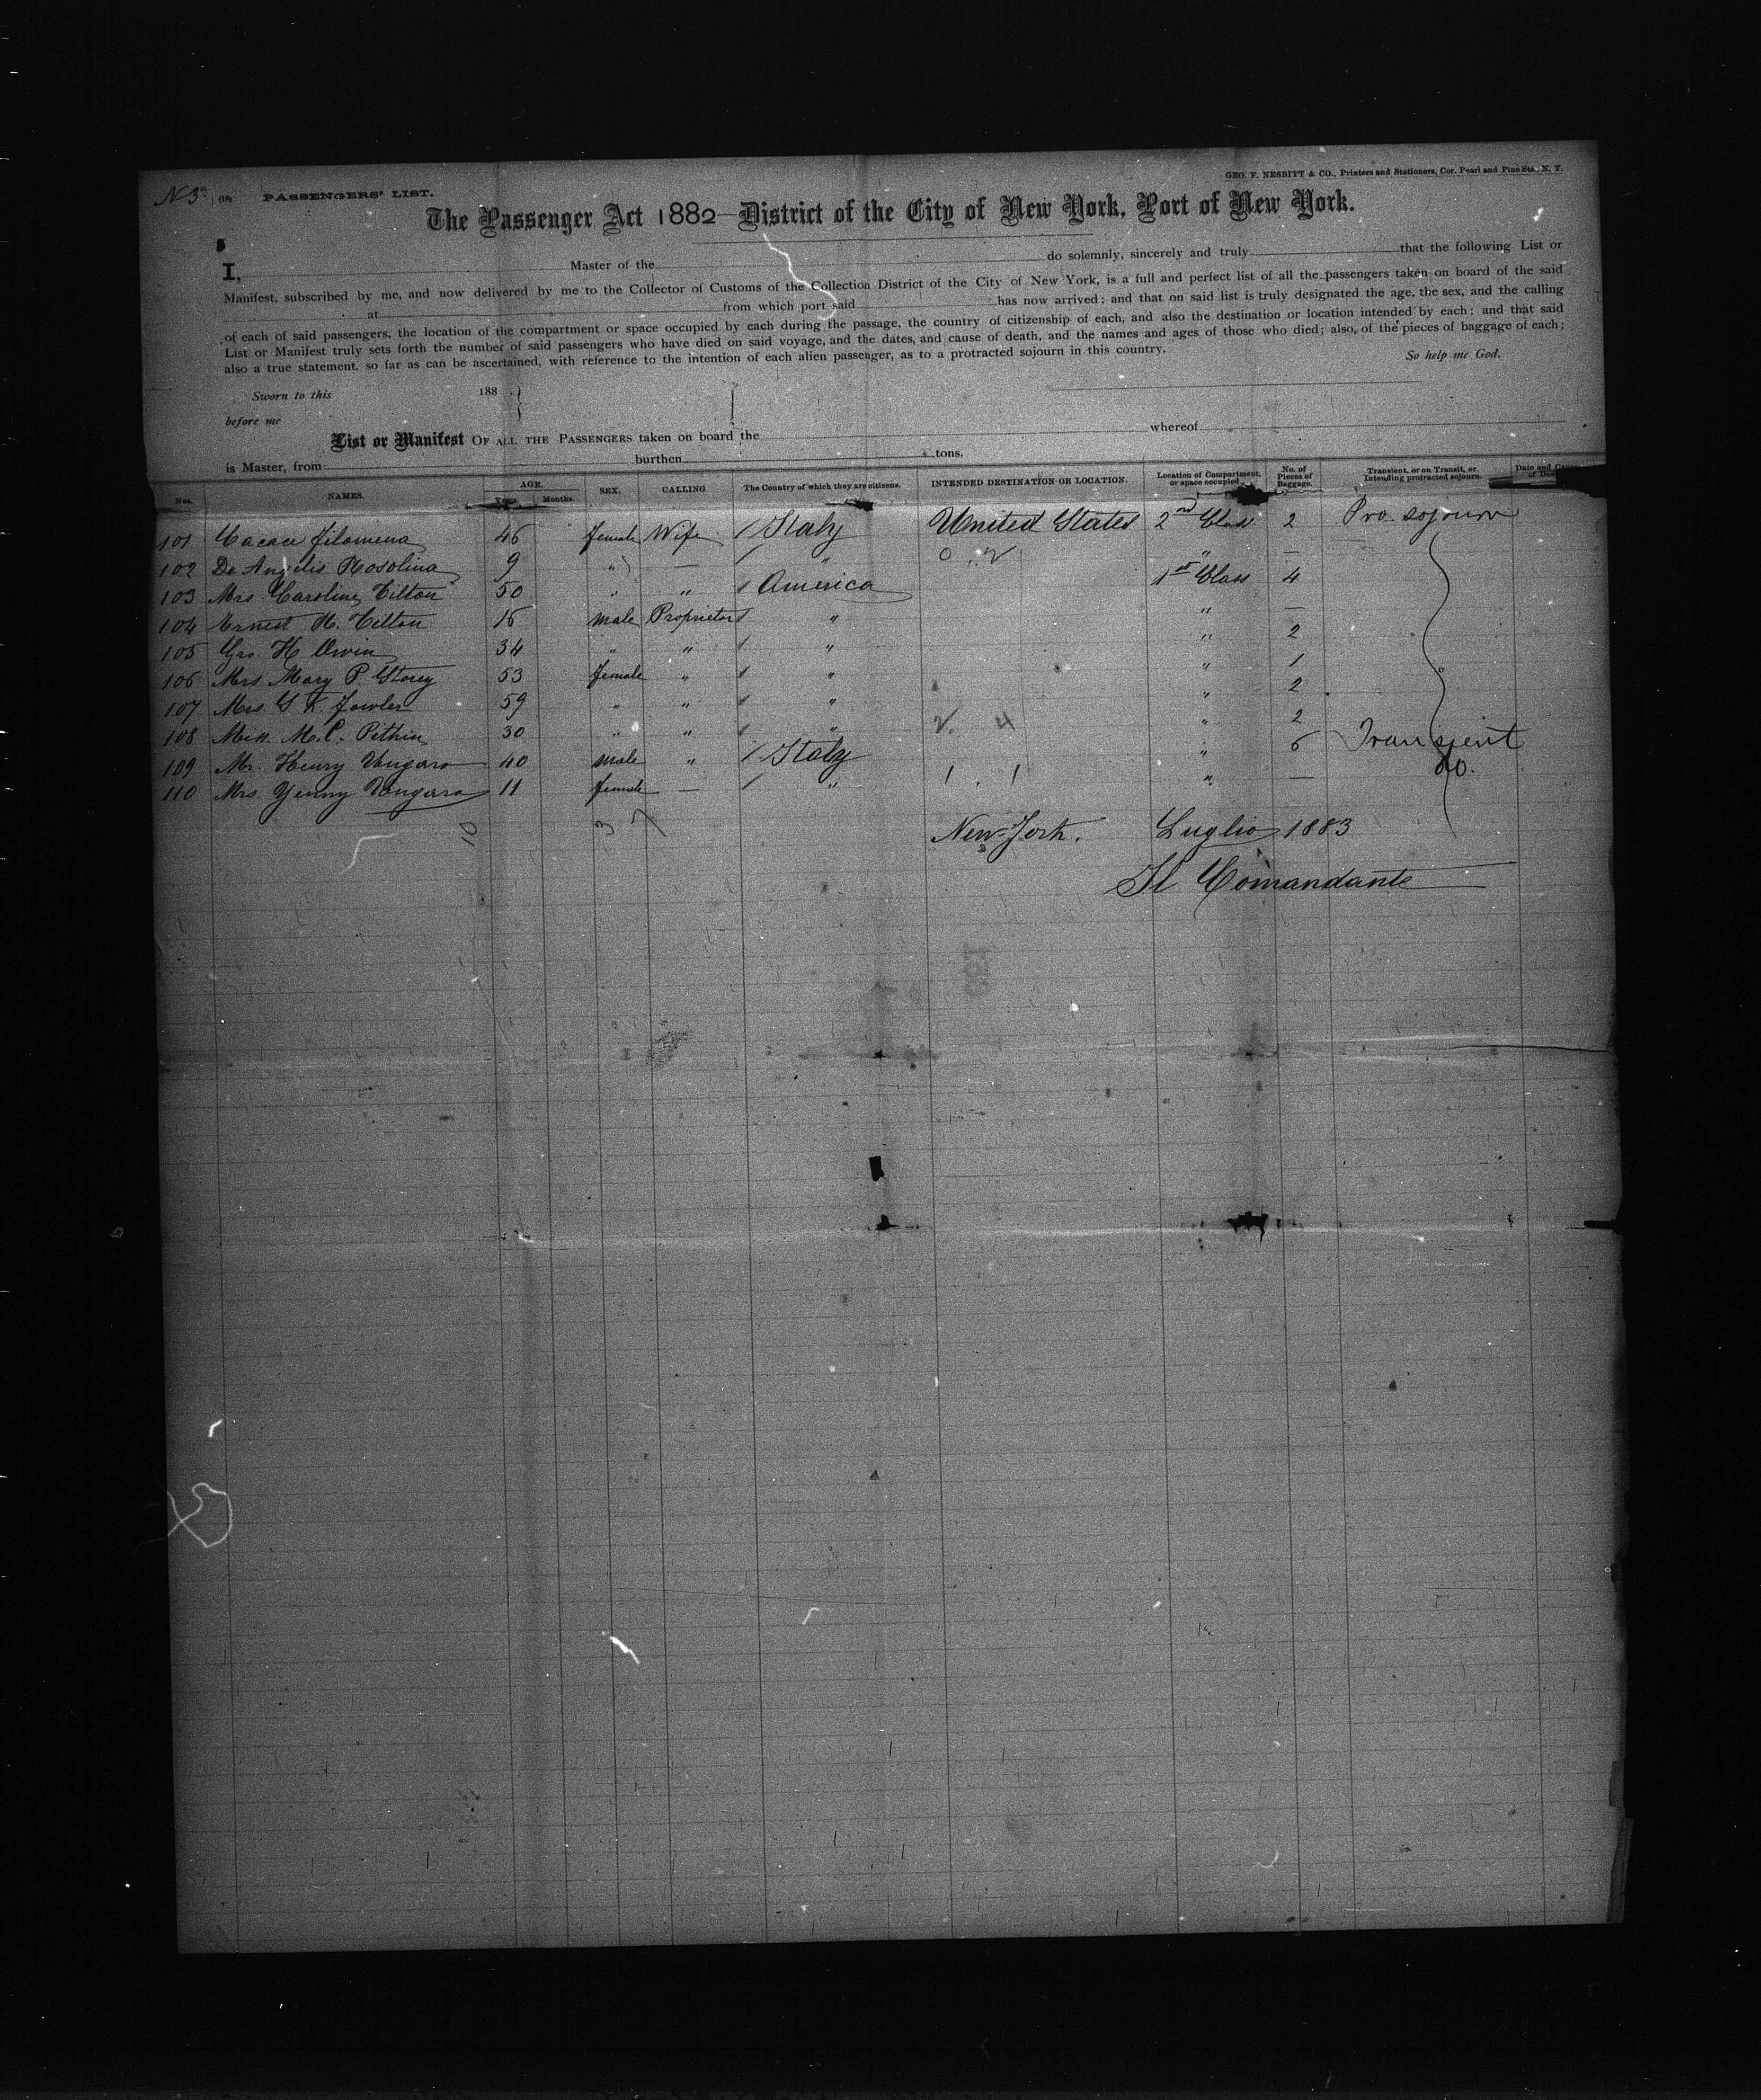 GEO. F. NESBITT & CO., Printers and Stationers, Cor. Pearl and Pine Sts., N. Y.
PASSENGERS' LIST.
The Passenger Act 1882—District of the City of New York, Port of New York.
I, Master of the do solemnly, sincerely and truly that the following List or
Manifest, subscribed by me, and now delivered by me to the Collector of Customs of the Collection District of the City of New York, is a full and perfect list of all the passengers taken on board of the said
at from which port said has now arrived; and that on said list is truly designated the age, the sex, and the calling
of each of said passengers, the location of the compartment or space occupied by each during the passage, the country of citizenship of each, and also the destination or location intended by each; and that said
List or Manifest truly sets forth the number of said passengers who have died on said voyage, and the dates, and cause of death, and the names and ages of those who died; also, of the pieces of baggage of each;
also a true statement, so far as can be ascertained, with reference to the intention of each alien passenger, as to a protracted sojourn in this country. So help me God.
Sworn to this 188
before me
List or Manifest OF ALL THE PASSENGERS taken on board the whereof
is Master, from burthen tons.
Nos. NAMES. AGE. Years. Months. SEX. CALLING The Country of which they are citizens. INTENDED DESTINATION OR LOCATION. Location of Compartment, or space occupied No. of Pieces of Baggage. Transient, or on Transit, or Intending protracted sojourn. Date and
101 Cacace Filomena 46 female Wife Italy United States 2nd Class 2 Pro. sojourn
102 De Angelis Rosolina 9 " — " " —
103 Mrs Caroline Tilton 50 " " America 1st Class 4
104 Ernest R. Tilton 16 male Proprietor " " —
105 Geo H. 34 " " " " 2
106 Mrs Mary P. Storey 53 female " " " 1
107 Mrs. G Fowler 59 " " " " 2
108 Miss. M.C. 30 " " " " 2
109 Mr. Henry Vongaro 40 male " Italy " 6 Transient
110 Mrs. Yenny Vongaro 11 female — " " — do.
New-York. Luglio 1883
Il Comandante